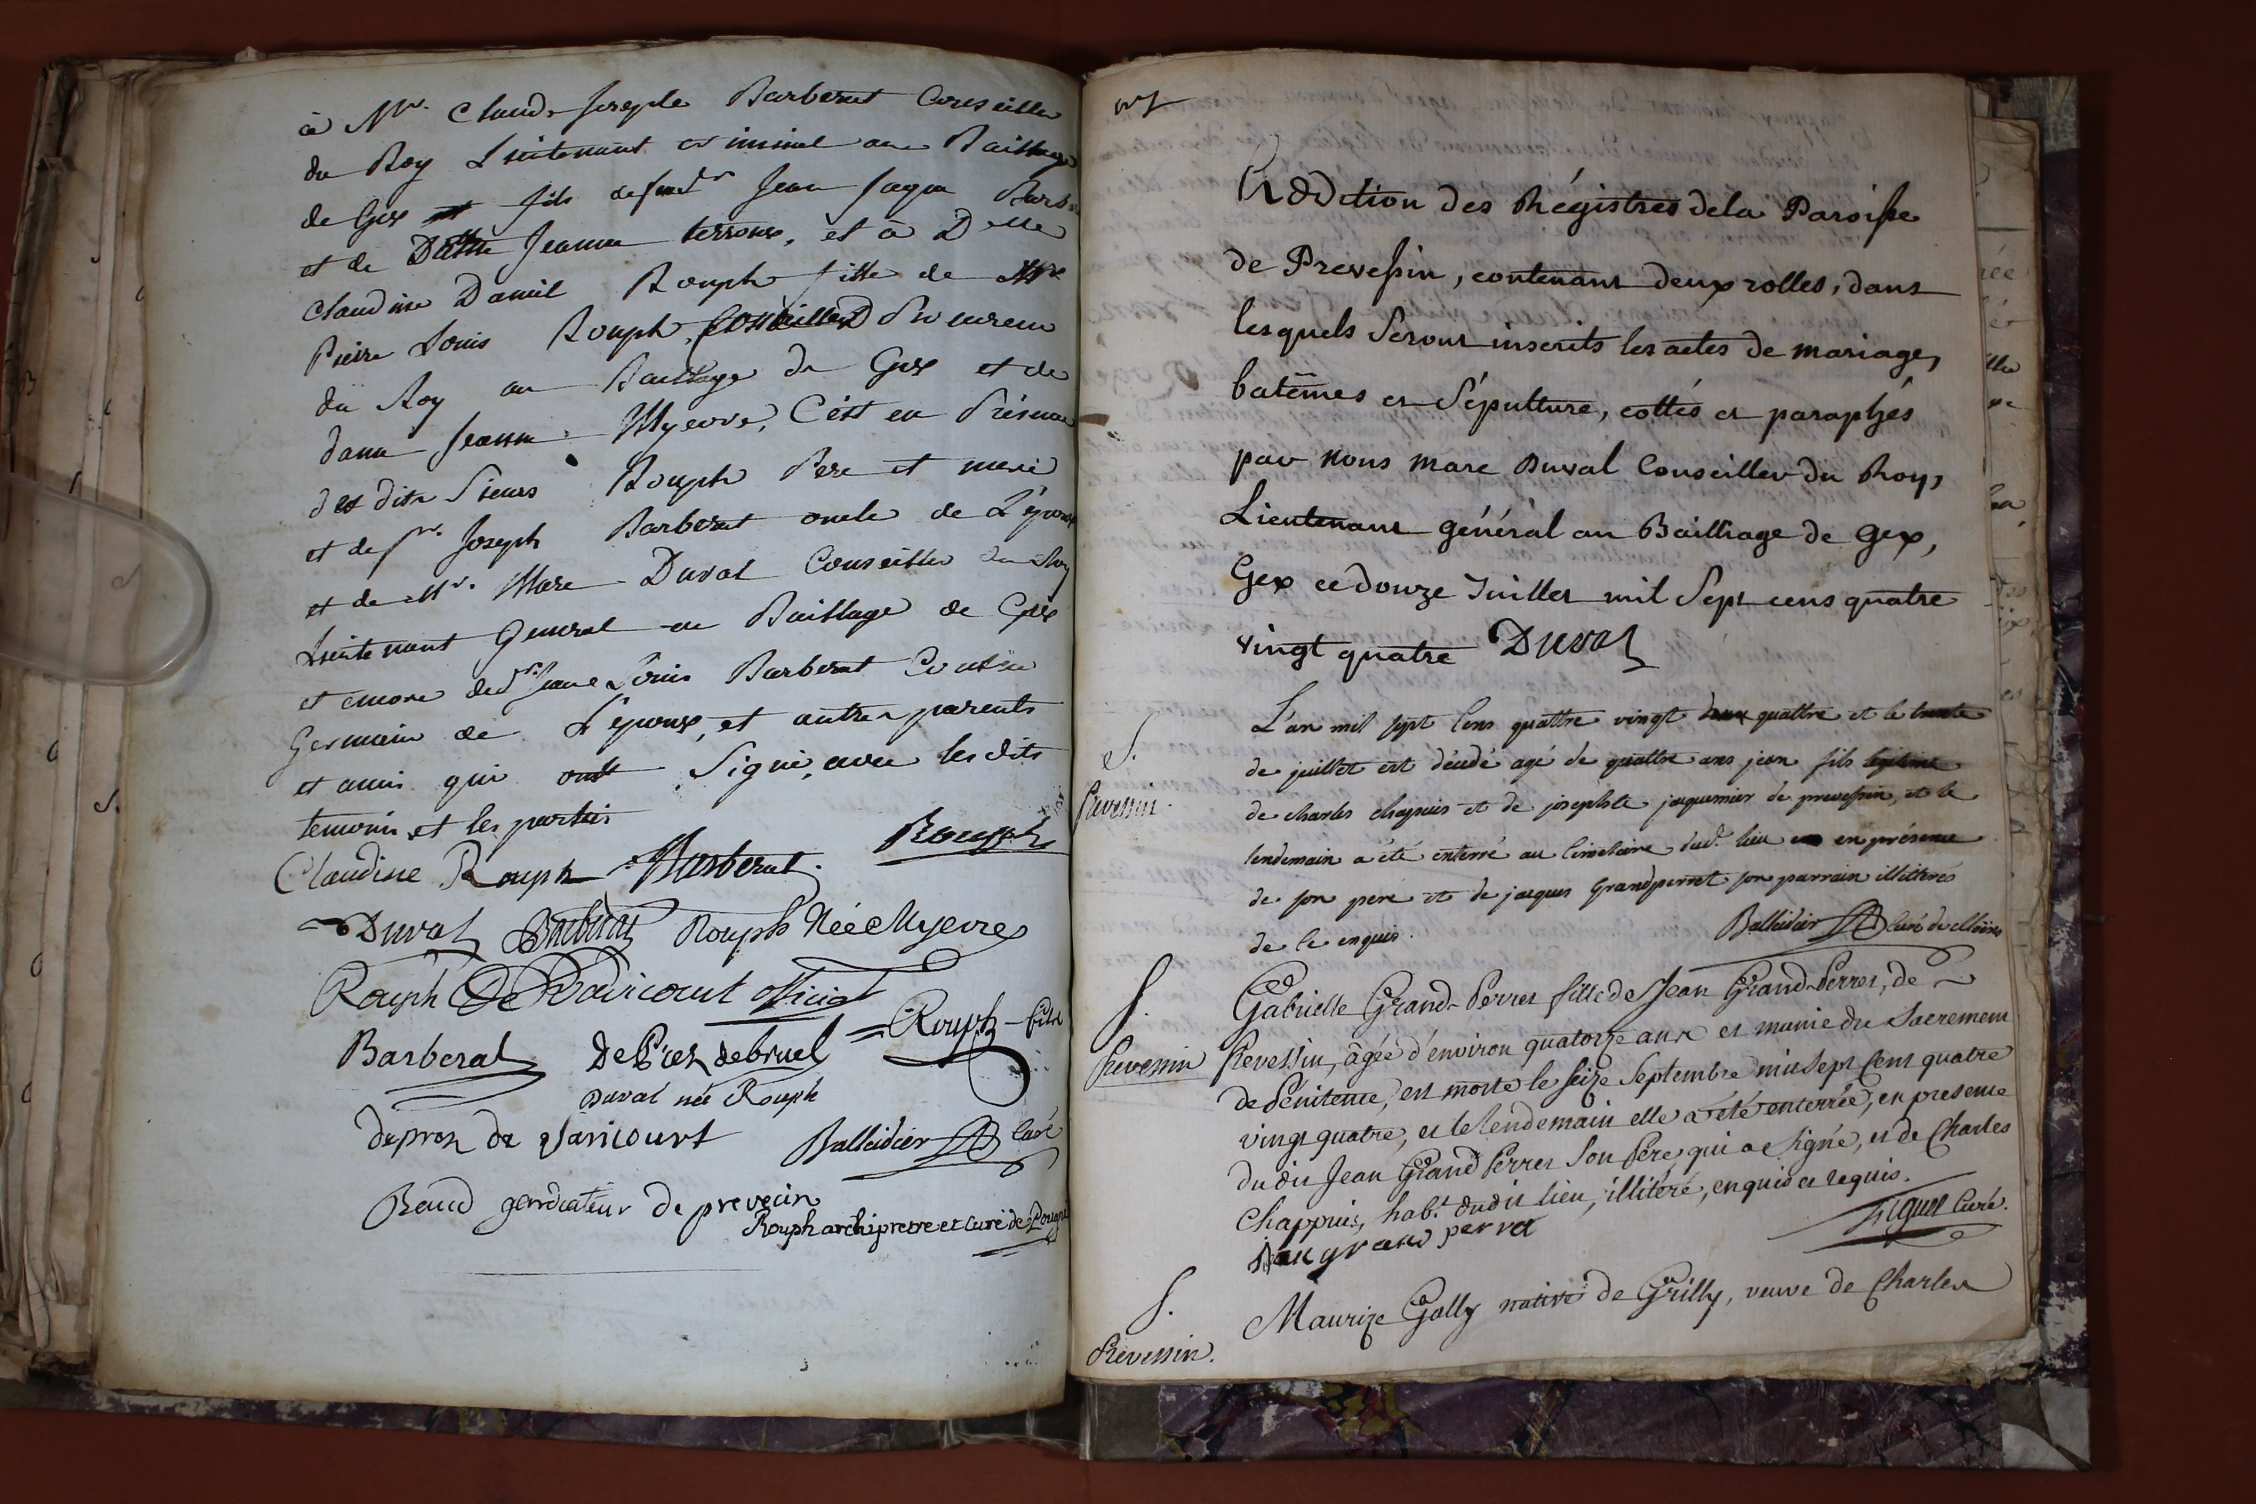 à Mr. Claude Joseple Barberat Conseiller
du Roy Lieutenant criminel au Bailliage
de Gex fils de feu Sr Jean Jaque Barb
et de Dame Jeanne terroux, et à Delle
Claudine Daniel Rouph fille de Mre
Pierre Louis Rouph, Conseiller Procureur
du Roy au Bailliage de Gex et de
dame Jeanne Myevre, C'est en Présence
des dits Sieurs Rouph Pere et mere
et de Sr. Joseph Barberat oncle de L'époux
et de Mr. Marc Duval Conseiller du Roy
Lieutenant General au Bailliage de Gex
et encore de Sr. Jean Louis Barberat Cousin
Germain de L'epoux, et autres parents
et amis qui ont Signé, avec les dits
temoins et les parties
Claudine Rouph Barberat. Rouph
Duval Barberat Rouph Née Myevre
Rouph De Varicourt official
Barberat DePrez debruel Rouph fils
Duval née Rouph
deprez de Varicourt Balleidier Curé
Baud de prevecin
Rouph archipretre et Curé de Pougni
Reddition des Régistres de la Paroisse
de Prevessin, contenant deux rolles, dans
lesquels Seront inscrits les actes de mariage,
batêmes et Sépulture, cottés et paraphés
par Nous Marc Duval Conseiller du Roy,
Lieutenant général au Bailliage de Gex,
Gex ce douze Juillet mil Sept cens quatre
vingt quatre Duval
S.
Prevessin.
L'an mil sept Cens quattre vingt quattre et le trente
de juillet est décédé agé de quattre ans jean fils légitime
de charles chapuis et de josephte jaquemier de prevessin, et le
lendemain a été enterré au Cimetiere dud. lieu en présence
de son pere et de jacques Grandperret son parrain illitérés
de ce enquis.
Balleidier Curé de Moëns
S.
Prevessin
Gabrielle Grand-Perret fille de Jean Grand-Perret, de
Prevessin, âgée d'environ quatorze ans et munie du Sacrement
de Pénitence, est morte le seize Septembre mil sept Cent quatre
vingt quatre, et le lendemain elle a été enterrée, en presence
du dit Jean Grand Perret Son Père qui a Signé, et de Charles
Chappuis, habt. dudit lieu, illitéré, enquis et requis.
Jean grand perret Figuet Curé.
S.
Prevessin.
Maurize Gally native de Grilly, veuve de Charles